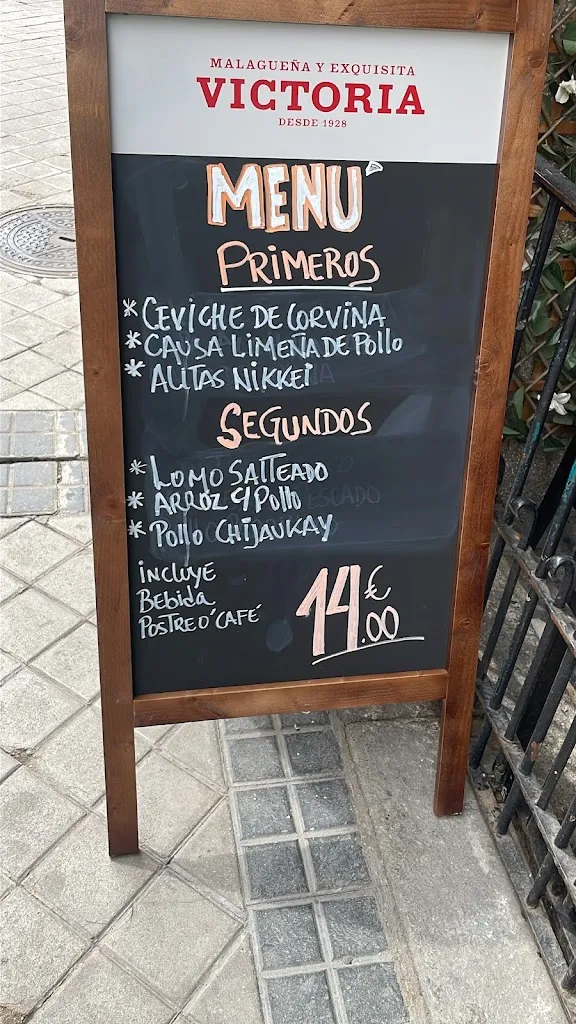 MALAGUEÑA Y EXQUISITA
VICTORIA
DESDE 1928
MENÚ
PRIMEROS
* CEVICHE DE CORVINA
* CAUSA LIMEÑA DE Pollo
* ALITAS NIKKEI
SEGUNDOS
* LOMO SALTEADO
* ARROZ C/ Pollo
* Pollo CHIJAUKAY
INCLUYE
Bebida
POSTRE O' CAFÉ
14.00 €